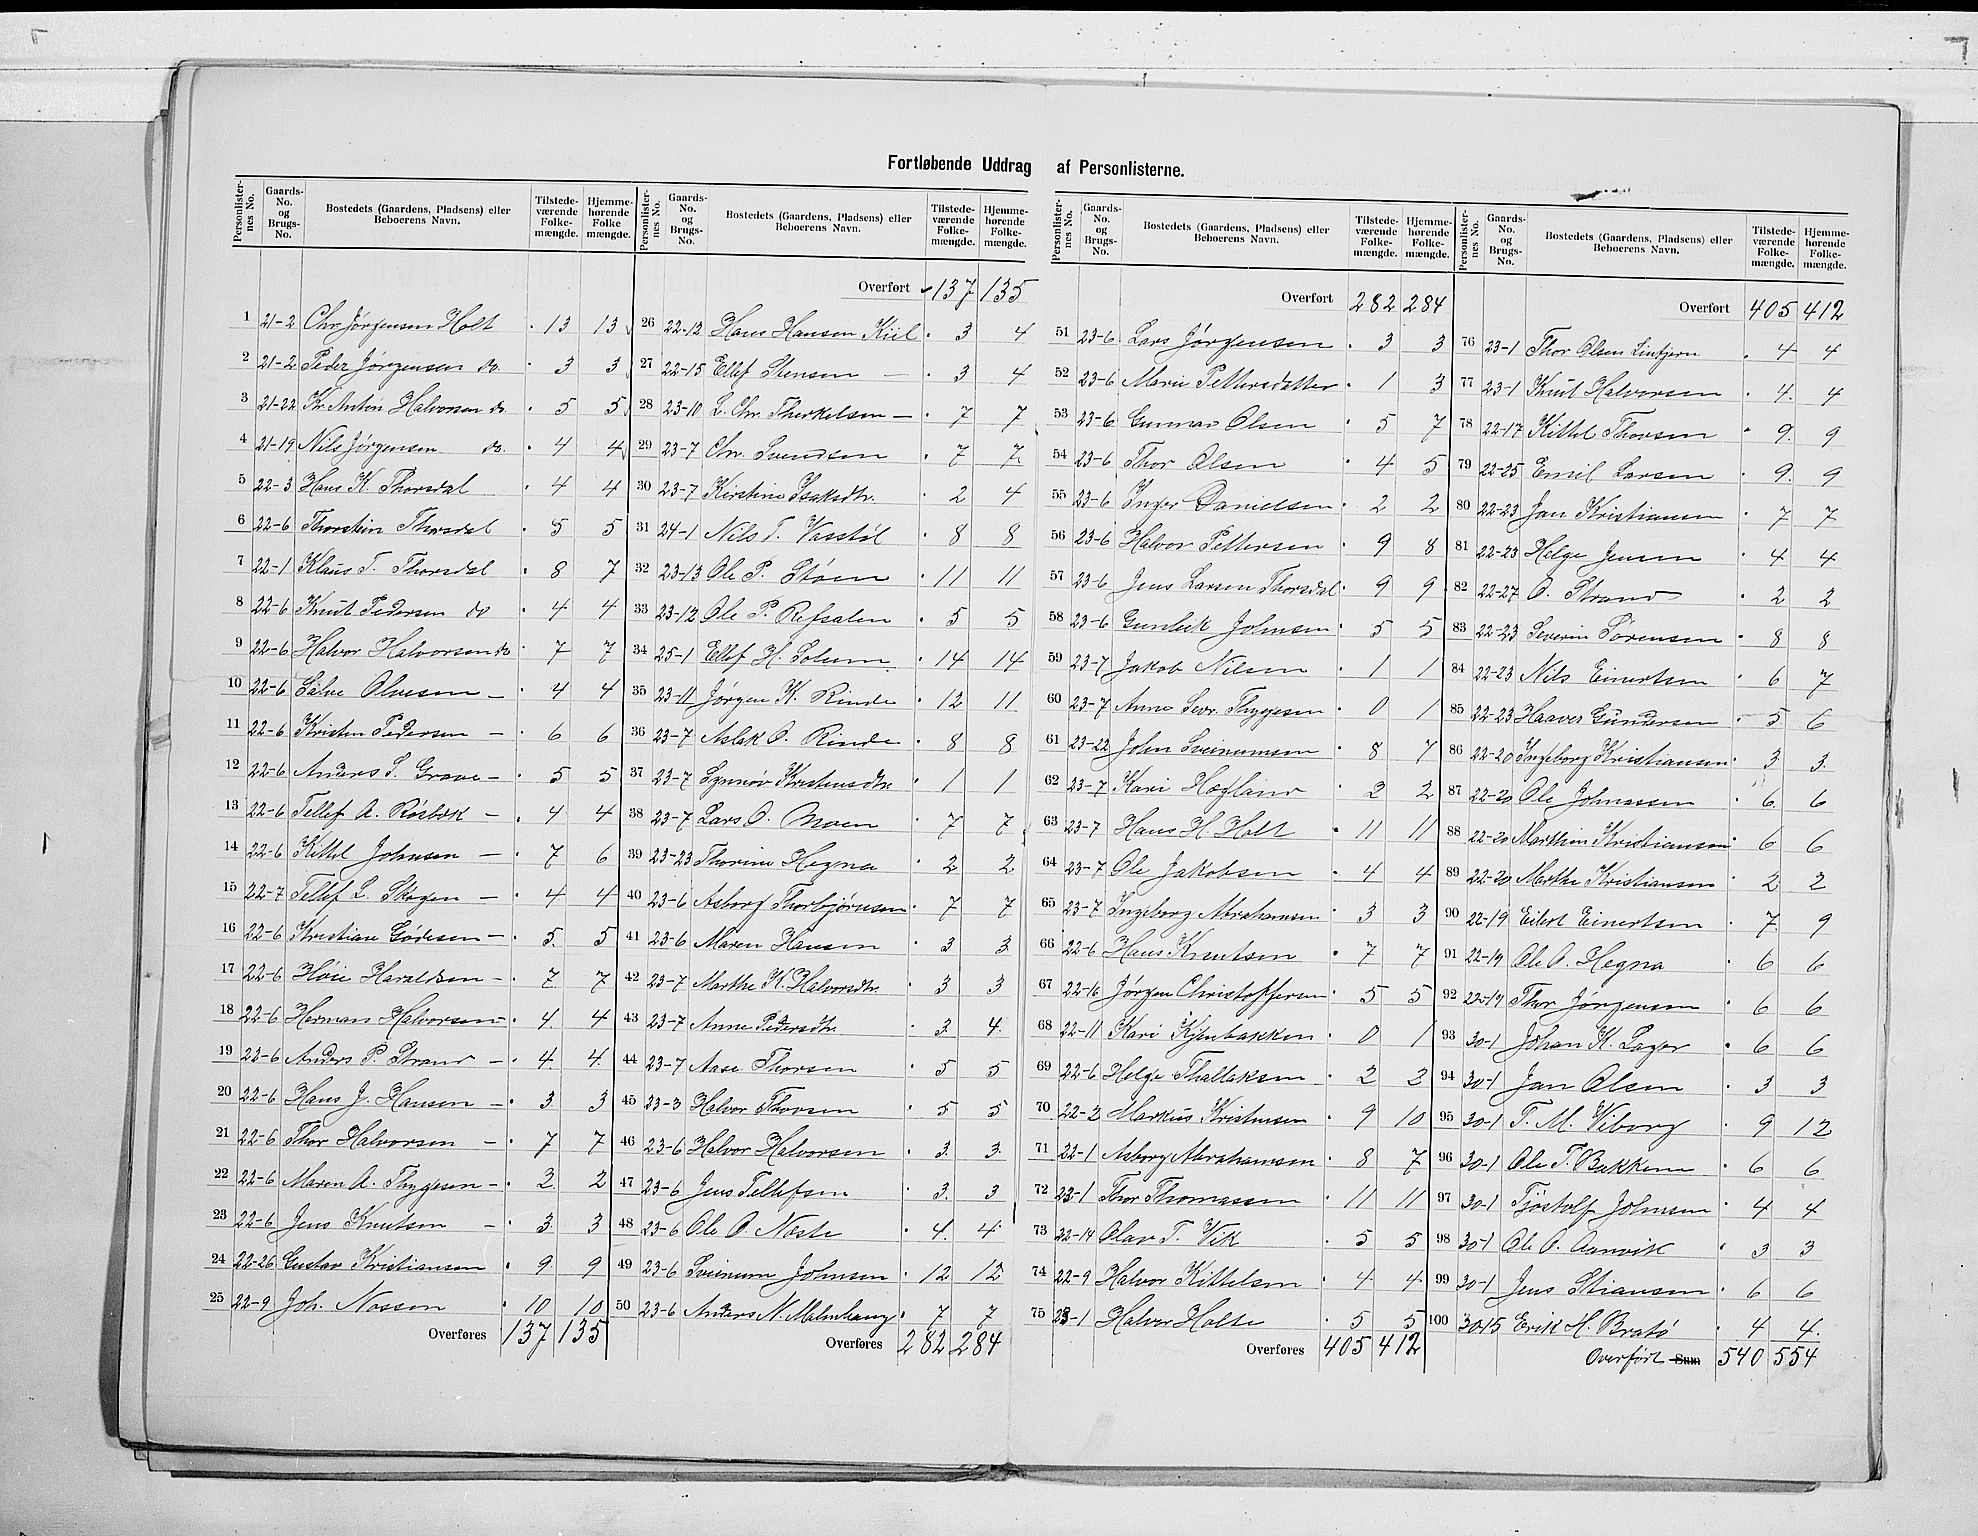 Fortløbende Uddrag af Personlisterne.
Personlister-nes No. Gaards-No. og Brugs-No. Bostedets (Gaardens, Pladsens) eller Beboerens Navn. Tilstede-værende Folke-mængde. Hjemme-hørende Folke mængde.
1 21-2 Chr Jørgensen Holt 13 13
2 21-2 Peder Jørgensen do. 3 3
3 21-22 Kr. Anton Halvorsen do. 5 5
4 21-19 Nils Jørgensen do. 4 4
5 22-3 Hans K. Thorsdal 4 4
6 22-6 Thorstein Thorsdal 5 5
7 22-1 Klaus T. Thorsdal 8 7
8 22-6 Knut Pedersen do 4 4
9 22-6 Halvor Halvorsen do 7 7
10 22-6 Salve Olvesen – 4 4
11 22-6 Kristen Pedersen – 6 6
12 22-6 Anders S. Grave – 5 5
13 22-6 Tellef A. Røsbæk – 4 4
14 22-6 Kittil Johnsen – 7 6
15 22-7 Tellef L. Skogen – 4 4
16 22-6 Kristiane Gødesen – 5 5
17 22-6 Høie Haraldsen – 7 7
18 22-6 Herman Halvorsen – 4 4
19 22-6 Anders P. Strand – 4 4
20 22-6 Hans J. Hansen – 3 3
21 22-6 Thor Halvorsen – 7 7
22 22-6 Maren A. Thygesen – 2 2
23 22-6 Jens Knutsen – 3 3
24 22-26 Gustav Kristiansen 9 9
25 22-9 Joh. Nossen 10 10
Overføres 137 135
Personlister-nes No. Gaards-No. og Brugs-No. Bostedets (Gaardens, Pladsens) eller Beboerens Navn. Tilstede-værende Folke-mængde. Hjemme-hørende Folke-mængde.
Overført 137 135
26 22-12 Hans Hansen Kiil 3 4
27 22-15 Ellef Stensen – 3 4
28 23-10 L. Chr. Therkelsen – 7 7
29 23-7 Chr. Svendsen 7 7
30 23-7 Kirstine Isaksdtr. 2 4
31 24-1 Nils T. Vasstøl 8 8
32 23-13 Ole P. Støen 11 11
33 23-12 Ole P. Refsalen 5 5
34 25-1 Ellef H. Solum 14 14
35 23-11 Jørgen K. Rinde 12 11
36 23-7 Aslak O. Rinde 8 8
37 23-7 Synnøv Kristensdtr. 1 1
38 23-7 Lars O. Moen 7 7
39 23-23 Thorine Hegna 2 2
40 23-6 Asborg Thorbjørnsen 7 7
41 23-6 Maren Hansen 3 3
42 23-7 Marthe K. Halvorsdtr. 3 3
43 23-7 Anne Pedersdtr. 3 4
44 23-7 Aase Thorsen 5 5
45 23-3 Halvor Thorsen 5 5
46 23-6 Halvor Halvorsen 3 3
47 23-6 Jens Tellefsen 3 3
48 23-6 Ole O. Næste 4 4
49 23-6 Sveinum Johnsen 12 12
50 23-6 Anders N. Malmhaug 7 7
Overføres 282 284
Personlister-nes No. Gaards-No. og Brugs-No. Bostedets (Gaardens, Pladsens) eller Beboerens Navn. Tilstede-værende Folke-mængde. Hjemme-hørende Folke-mængde.
Overført 282 284
51 23-6 Lars Jørgensen 3 3
52 23-6 Marie Pettersdatter 1 3
53 23-6 Gunnar Olsen 5 7
54 23-6 Thor Olsen 4 5
55 23-6 Inger Danielsen 2 2
56 23-6 Halvor Pettersen 9 8
57 23-6 Jens Larsen Thorsdal 9 9
58 23-6 Gunbek Johnsen 5 5
59 23-7 Jakob Nilsen 1 1
60 23-7 Anne Sevr. Thygesen 0 1
61 23-22 John Sveinumsen 8 7
62 23-7 Kari Hægland 2 2
63 23-7 Hans H. Holt 11 11
64 23-7 Ole Jakobsen 4 4
65 23-7 Ingeborg Abrahamsen 3 3
66 22-6 Hans Knutsen 7 7
67 22-16 Jørgen Christoffersen 5 5
68 22-11 Kari Kjenbakken 0 1
69 22-6 Helge Thallaksen 2 2
70 22-2 Markus Kristensen 9 10
71 22-1 Asborg Abrahamsen 8 7
72 23-1 Thor Thomassen 11 11
73 22-14 Olav T. Vik 5 5
74 22-9 Halvor Kittelsen 4 4
75 23-1 Halvor Holte 5 5
Overføres 405 412
Personlister-nes No. Gaards-No. og Brugs-No. Bostedets (Gaardens, Pladsens) eller Beboerens Navn. Tilstede-værende Folke-mængde. Hjemme-hørende Folke-mængde.
Overført 405 412
76 23-1 Thor Olsen Lintjern 4 4
77 23-1 Knut Halvorsen 4 4
78 22-17 Kittel Thorsen 9 9
79 22-25 Emil Larsen 9 9
80 22-23 Jan Kristiansen 7 7
81 22-23 Helge Jensen 4 4
82 22-27 O. Strand 2 2
83 22-23 Severin Sørensen 8 8
84 22-23 Nils Einertsen 6 7
85 22-23 Haaver Gundersen 5 6
86 22-20 Ingeborg Kristiansen 3 3
87 22-20 Ole Johnassen 6 6
88 22-20 Marthin Kristiansen 6 6
89 22-20 Marthe Kristiansen 2 2
90 22-19 Eilert Einertsen 7 9
91 22-19 Ole O. Hegna 6 6
92 22-19 Thor Jørgensen 6 6
93 30-1 Johan K. Lager 6 6
94 30-1 Jan Olsen 3 3
95 30-1 T. M. Viborg 9 12
96 30-1 Ole T. Bakken 6 6
97 30-1 Tjøstolf Johnsen 4 4
98 30-1 Ole O. Aanvik 3 3
99 30-1 Jens Stiansen 6 6
100 30-15 Erik H. Bratø 4 4
Overført Sum 540 554